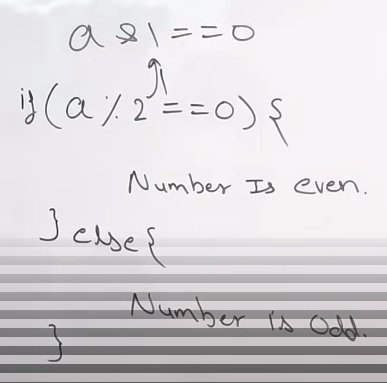 a & 1 == 0
if (a % 2 == 0) {
Number Is even.
} else {
Number is Odd.
}